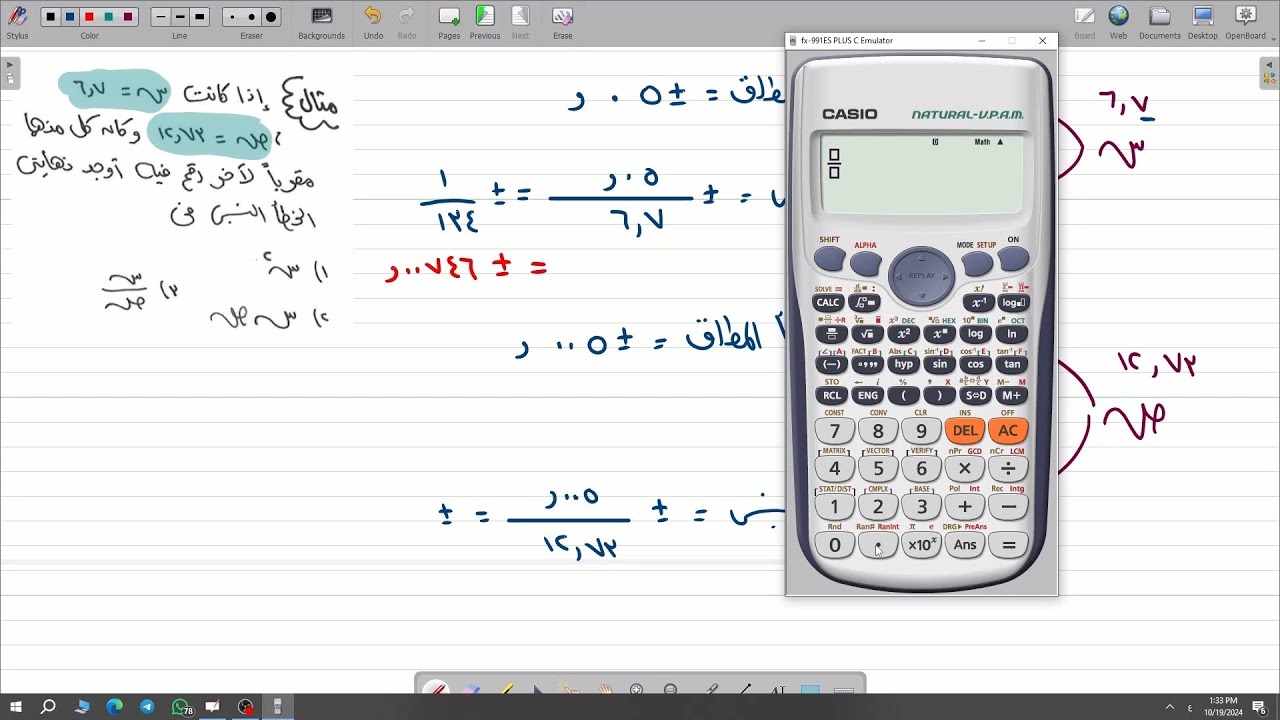 Stylus
Color
Line
Eraser
Backgrounds
Undo
Redo
Pages
Previous
Next
Erase
Board
Web
Documents
Desktop
OpenBoard
مثال ٤ إذا كانت س = ٦,٧
، ص = ١٢,٧٣ وكانه كل منها
مقرباً لآخر رقم فيه أوجد نهايتى
الخطأ النسبى فى
١) س٢
٢) س ص
٣) س/ص
المطلق = ± ٠٥ ,
= ± ٠٥, / ٦,٧ = ± ١ / ١٣٤
= ± ٠٠٧٤٦ ,
المطلق = ± ٠٠٥ ,
= ± ٠٠٥, / ١٢,٧٣ = ±
٦,٧
س
١٢,٧٣
ص
fx-991ES PLUS C Emulator
CASIO
NATURAL-V.P.A.M.
D Math ▲
SHIFT ALPHA REPLAY MODE SETUP ON
SOLVE = d/dx : x! Σ Π
CALC ∫ x⁻¹ log
÷R x³ DEC HEX 10 BIN e OCT
√ x² log ln
A FACT B Abs C sin⁻¹ D cos⁻¹ E tan⁻¹ F
(−) hyp sin cos tan
STO ← i % , X Y M− M
RCL ENG ( ) S⇔D M+
CONST CONV CLR INS OFF
7 8 9 DEL AC
MATRIX VECTOR VERIFY nPr GCD nCr LCM
4 5 6 × ÷
STAT/DIST CMPLX BASE Pol Int Rec Intg
1 2 3 + −
Rnd Ran# RanInt π e DRG▶ PreAns
0 . ×10ˣ Ans =
78
ع
1:33 PM
10/19/2024
6